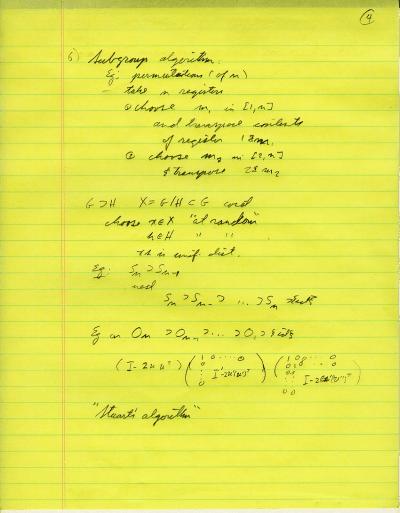 4
6) Subgroup algorithm.
Eg: permutations (of n)
– take n registers
① choose m₁ in [1,n]
and transpose contents
of register 1 & m₁
② choose m₂ in [2,n]
& transpose 2 & m₂
G > H X = G/H ⊂ G
choose x ∈ X "at random"
h ∈ H " " .
xh is unif. dist.
Eg: Sₙ > Sₙ₋₁
Eg on Oₙ > Oₙ₋₁ > ... > O₁ >
(I - 2uuᵀ)
"Stuart's algorithm"